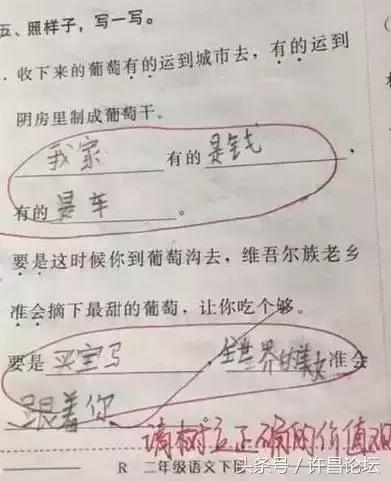 五、照样子,写一写。
收下来的葡萄有的运到城市去,有的运到
阴房里制成葡萄干。
我家有的是钱,
有的是车。
要是这时候你到葡萄沟去,维吾尔族老乡
准会摘下最甜的葡萄,让你吃个够。
要是买宝马,全世界的美女准会
跟着你
请树立正确的价值观
R 二年级语文下
头条号/许昌论坛